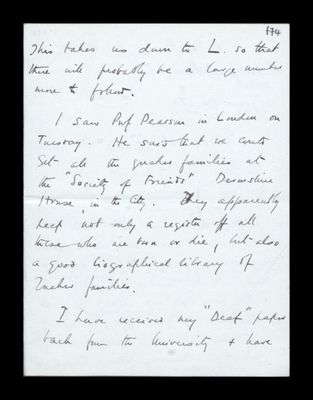 174
This takes us down to L. so that
there will probably be a large number
more to follow.
I saw Prof Pearson in London on
Tuesday. He said that we could
get all the quaker families at
the "Society of Friends" Devonshire
House, in the City. They apparently
keep not only a register of all
those who are born or die, but also
a good biographical library of
Quaker families.
I have received my "Deaf" paper
back from the University & have